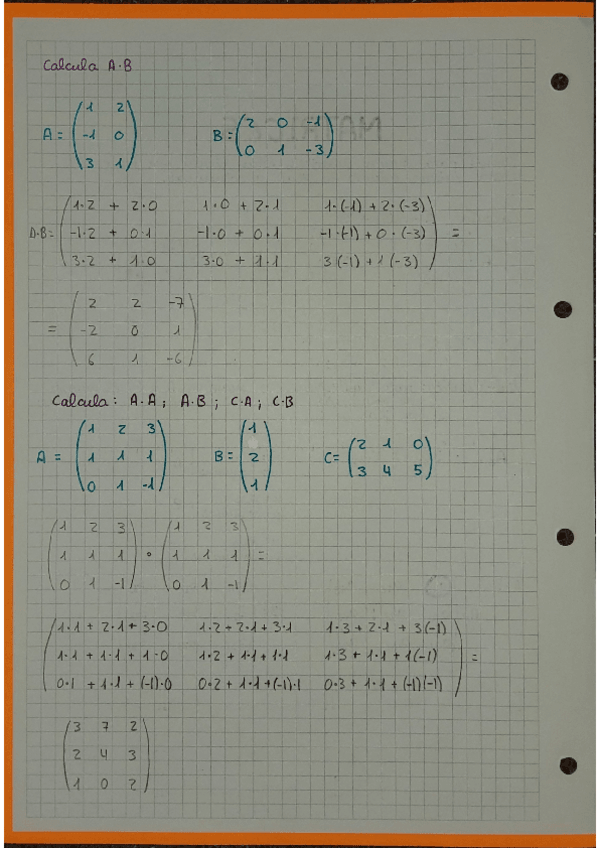 Calcula A·B
A = (1 2; -1 0; 3 1) B = (2 0 -1; 0 1 -3)
A·B = (1·2 + 2·0 1·0 + 2·1 1·(-1) + 2·(-3)
-1·2 + 0·1 -1·0 + 0·1 -1·(-1) + 0·(-3)
3·2 + 1·0 3·0 + 1·1 3(-1) + 1(-3)) =
= (2 2 -7
-2 0 1
6 1 -6)
Calcula: A·A; A·B; C·A; C·B
A = (1 2 3; 1 1 1; 0 1 -1) B = (1; 2; 1) C = (2 1 0; 3 4 5)
(1 2 3; 1 1 1; 0 1 -1) · (1 2 3; 1 1 1; 0 1 -1) =
(1·1 + 2·1 + 3·0 1·2 + 2·1 + 3·1 1·3 + 2·1 + 3(-1)
1·1 + 1·1 + 1·0 1·2 + 1·1 + 1·1 1·3 + 1·1 + 1(-1)
0·1 + 1·1 + (-1)·0 0·2 + 1·1 + (-1)·1 0·3 + 1·1 + (-1)(-1)) =
(3 7 2
2 4 3
1 0 2)